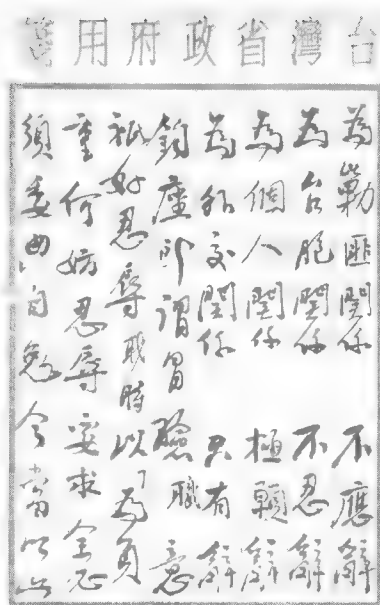 台灣省政府用箋
為勦匪關係 不應辭
為台胞關係 不忍辭
為個人關係 極願辭
為外交關係 只有辭
鈞座即謂冒險職意
祇好忍辱職時以「為負
重何妨忍辱要求全必
須委曲自勉今當以此